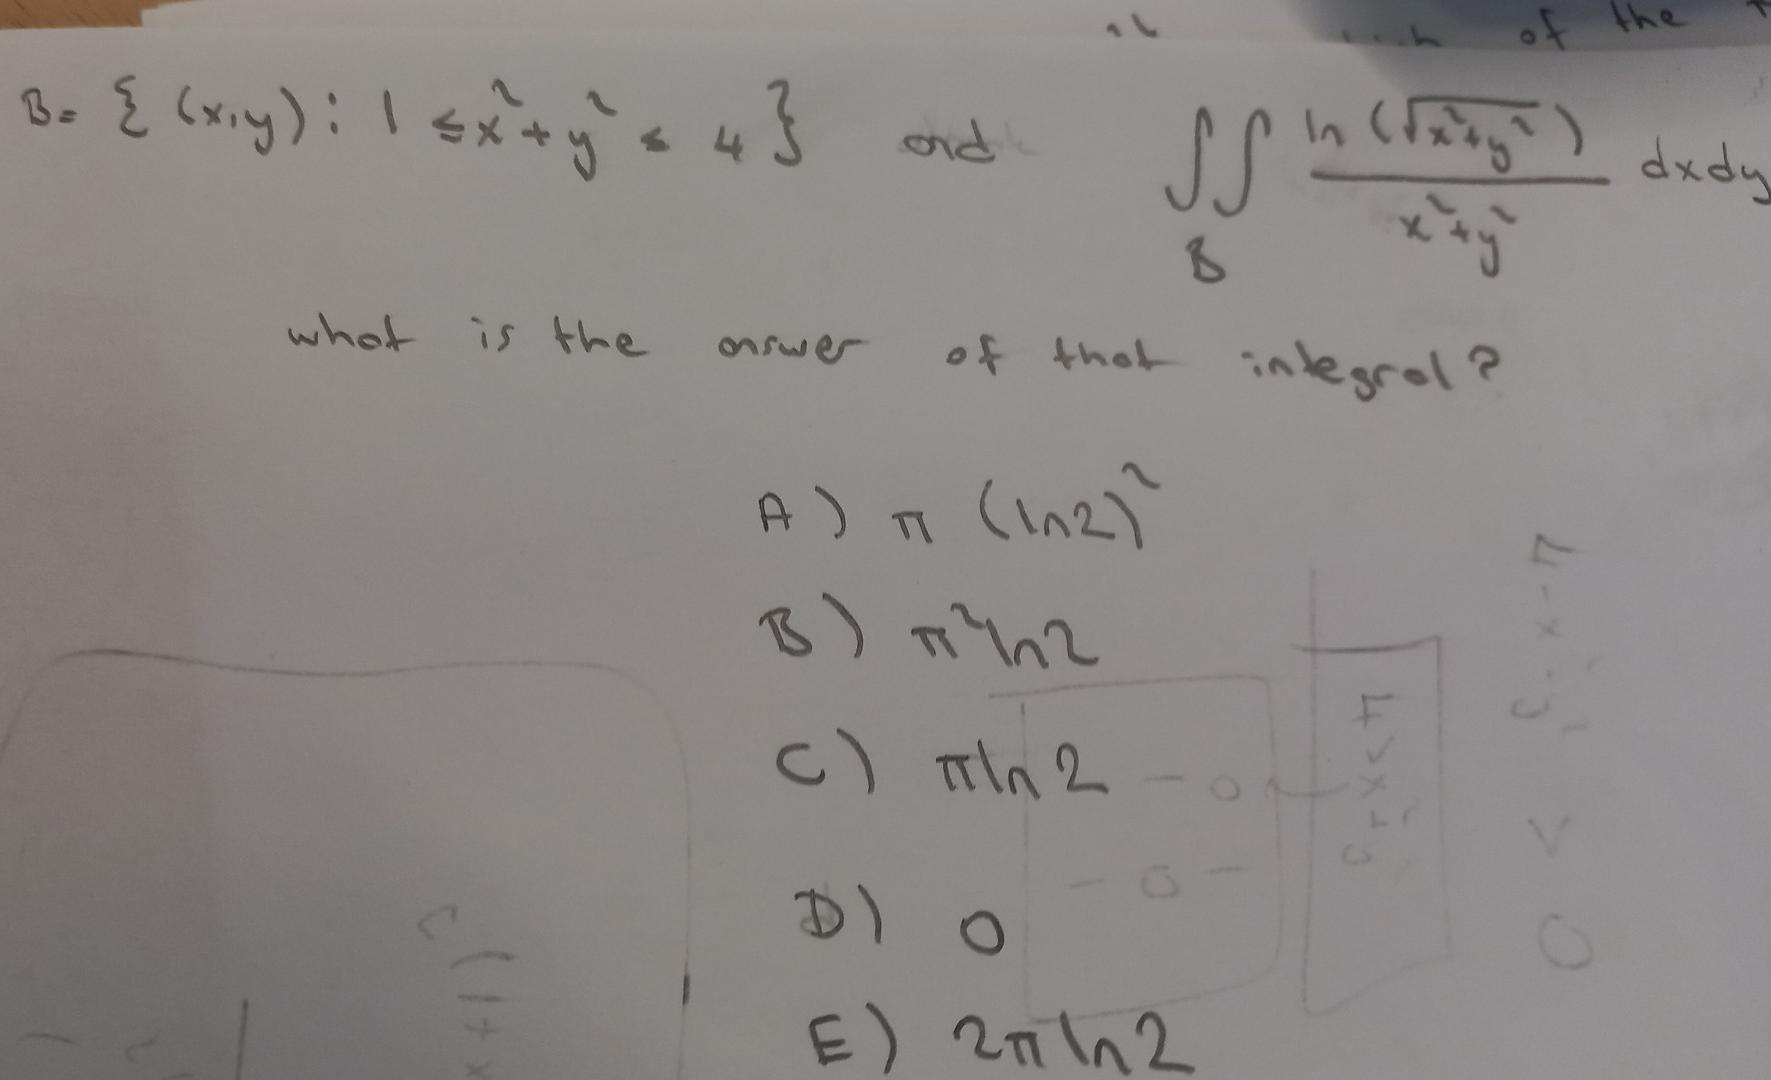 of the
B = { (x,y) : 1 ≤ x² + y² ≤ 4 } and ∬_B ln(√(x²+y²)) / (x²+y²) dxdy
what is the answer of that integral?
A) π (ln2)²
B) π² ln2
C) π ln 2
D) 0
E) 2π ln 2